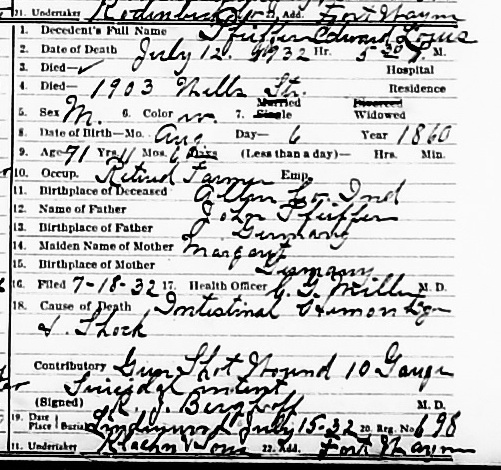 21. Undertaker 22. Add. Fort Wayne
1. Decedent's Full Name Pfeiffer Edward Louis
2. Date of Death July 12. 1932 Hr. 5-30 P. M.
3. Died— Hospital
4. Died— 1903 Wells St. Residence
5. Sex M. 6. Color W. 7. Married Single Divorced Widowed
8. Date of Birth—Mo. Aug Day— 6 Year 1860
9. Age 71 Yrs 11 Mos. 6 Days (Less than a day)— Hrs. Min.
10. Occup. Retired Farmer Emp.
11. Birthplace of Deceased Allen Co. Ind
12. Name of Father John Pfeiffer
13. Birthplace of Father Germany
14. Maiden Name of Mother Margaret
15. Birthplace of Mother Germany
16. Filed 7-18-32 17. Health Officer Miller M. D.
18. Cause of Death Intestinal
& Shock
Contributory Gun Shot Wound 10 Gauge
Suicidal intent
(Signed) J. Berghoff M. D.
19. Date Place Burial Lindenwood July 15-32 20. Reg. No 698
21. Undertaker Klaehn & Sons 22. Add. Fort Wayne